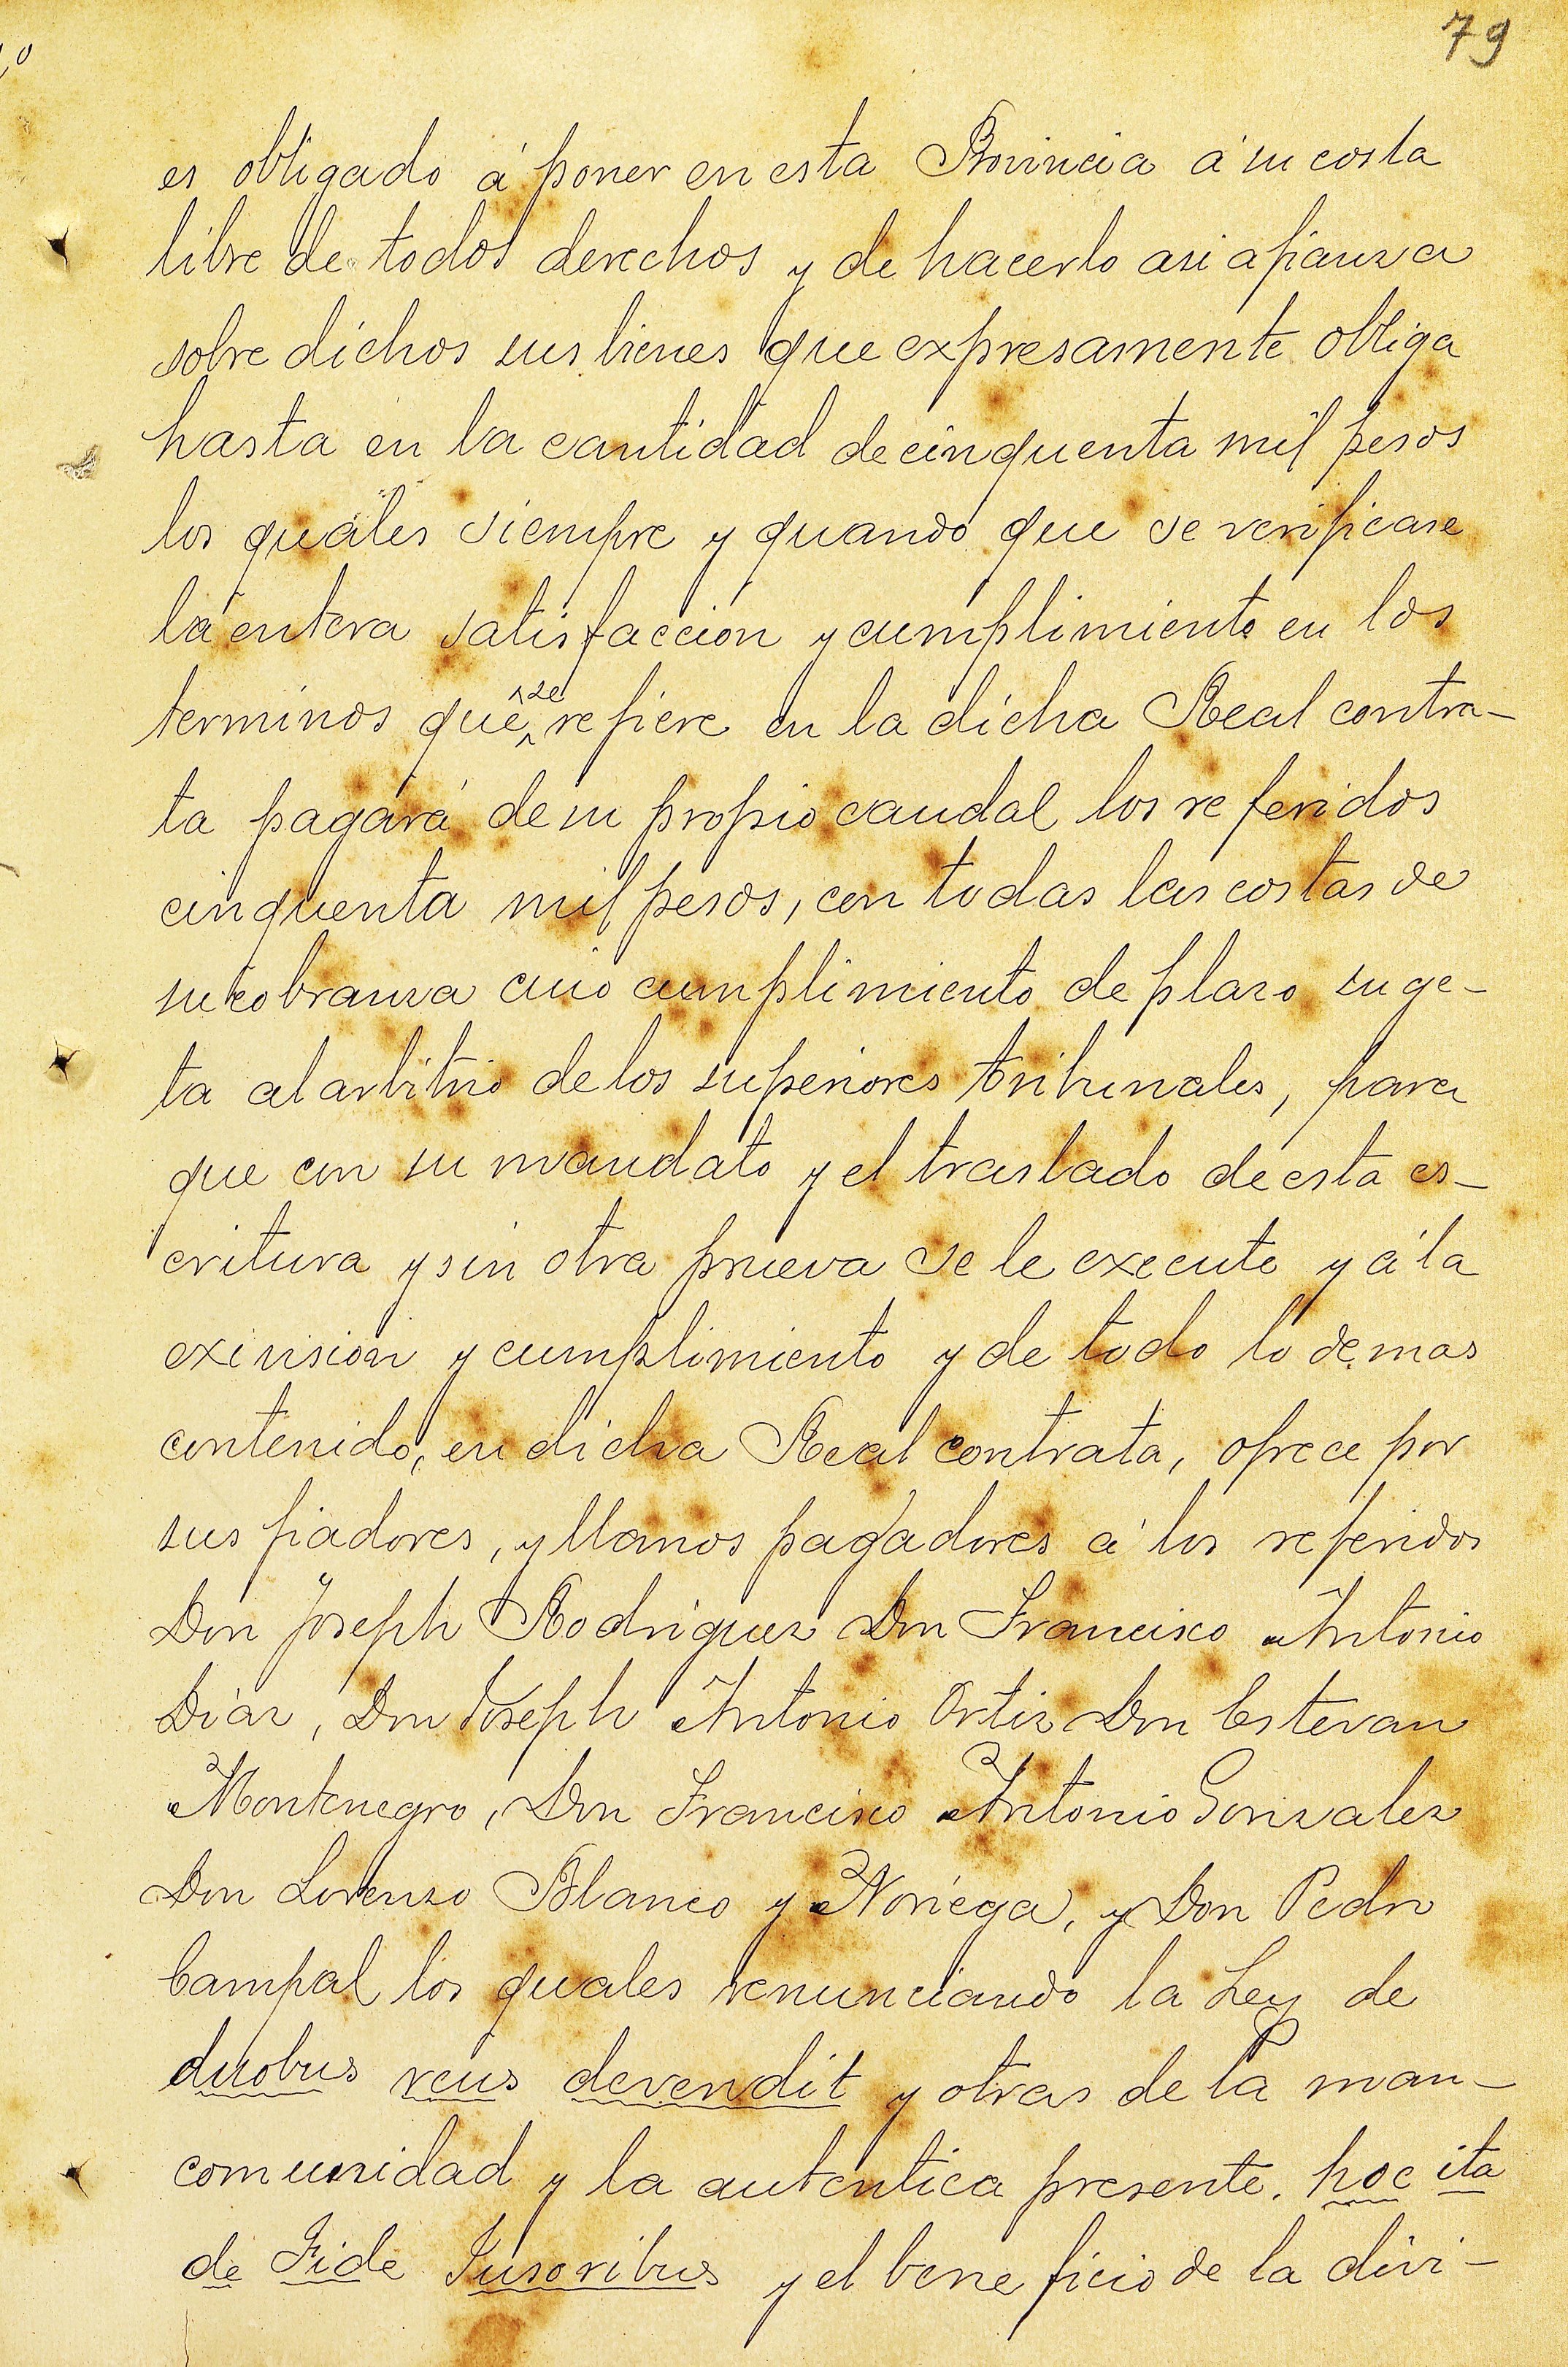 79
es obligado á poner en esta Provincia á su costa
libre de todos derechos y de hacerlo asi afianza
sobre dichos sus bienes que expresamente obliga
hasta en la cantidad de cinquenta mil pesos
los quales siempre y quando que se verificase
la entera satisfaccion y cumplimiento en los
terminos que se refiere en la dicha Real contra-
ta pagará de su propio caudal los referidos
cinquenta mil pesos, con todas las costas de
su cobranza cuio cumplimiento de plazo suge-
ta al arbitrio de los superiores tribunales, para
que con su mandato y el traslado de esta es-
critura y sin otra prueva se le execute y á la
exivision y cumplimiento y de todo lo demas
contenido, en dicha Real contrata, ofrece por
sus fiadores, y llanos pagadores á los referidos
Don Joseph Rodriguez Don Francisco Antonio
Diaz, Don Joseph Antonio Ortiz Don Estevan
Montenegro, Don Francisco Antonio Gonzalez
Don Lorenzo Blanco y Noriega, y Don Pedro
Campal los quales renunciando la Ley de
duobus reus devendit y otras de la man-
comunidad y la autentica presente. hoc ita
de Fide Jusoribus y el beneficio de la divi-